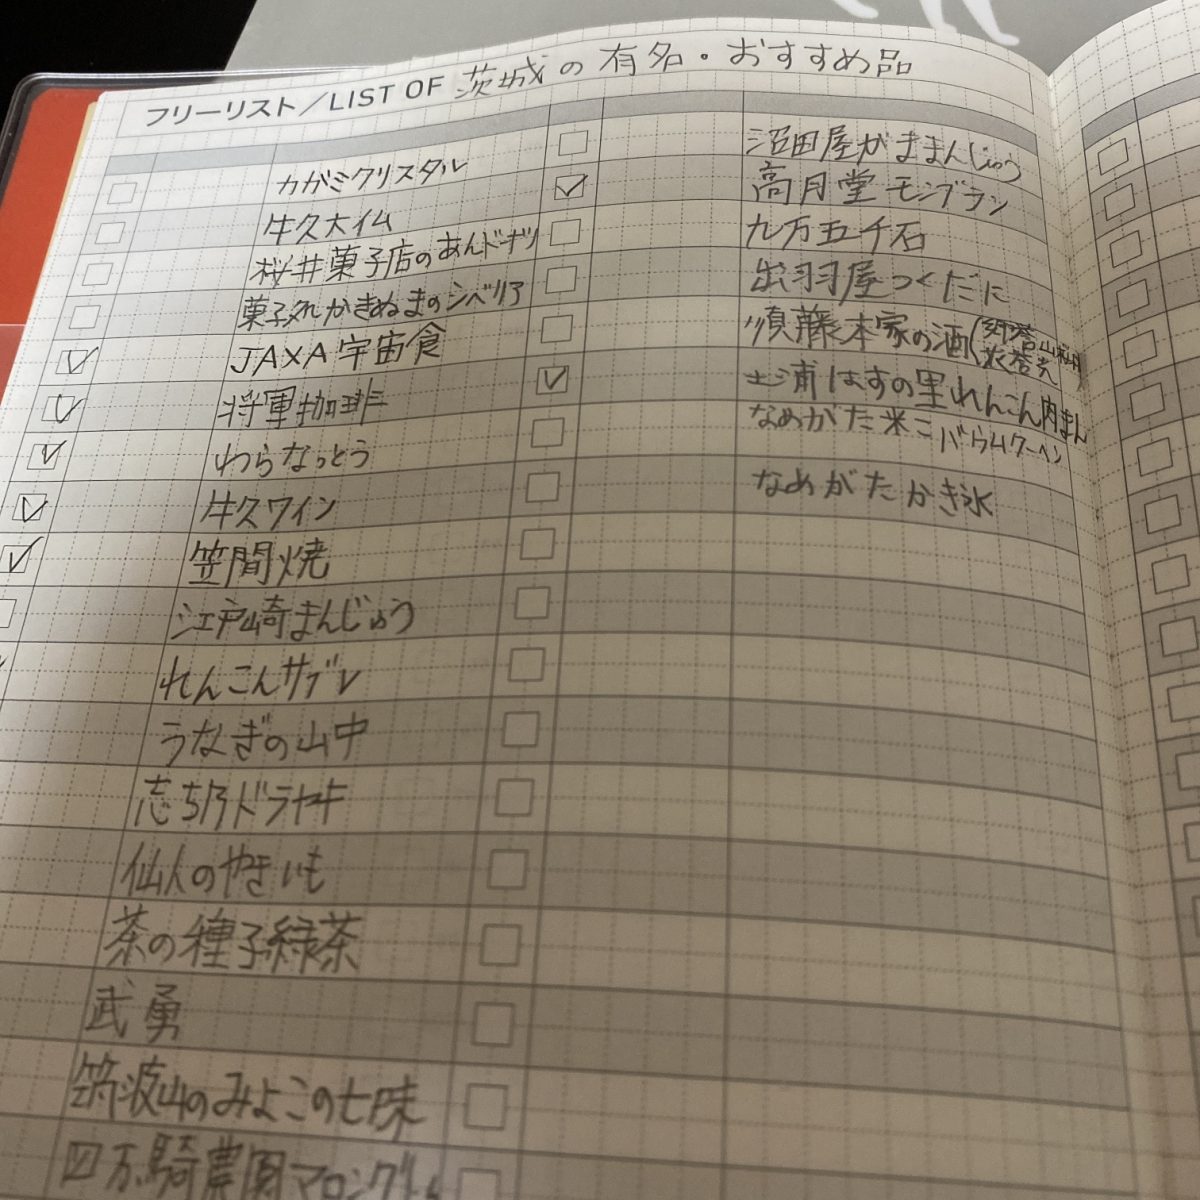 フリーリスト/LIST OF 茨城の有名・おすすめ品
カガミクリスタル
牛久大仏
桜井菓子店のあんドーナツ
菓子処かきぬまのシベリア
JAXA宇宙食
将軍珈琲
わらなっとう
牛久ワイン
笠間焼
江戸崎まんじゅう
れんこんサブレ
うなぎの山中
志ち乃ドラヤキ
仙人のやきいも
茶の種子緑茶
武勇
筑波山のみよこの七味
四万騎農園マロングラッセ
沼田屋がままんじゅう
高月堂モンブラン
九万五千石
出羽屋つくだに
須藤本家の酒
土浦はすの里れんこん肉まん
なめがた米こバウムクーヘン
なめがたかき氷